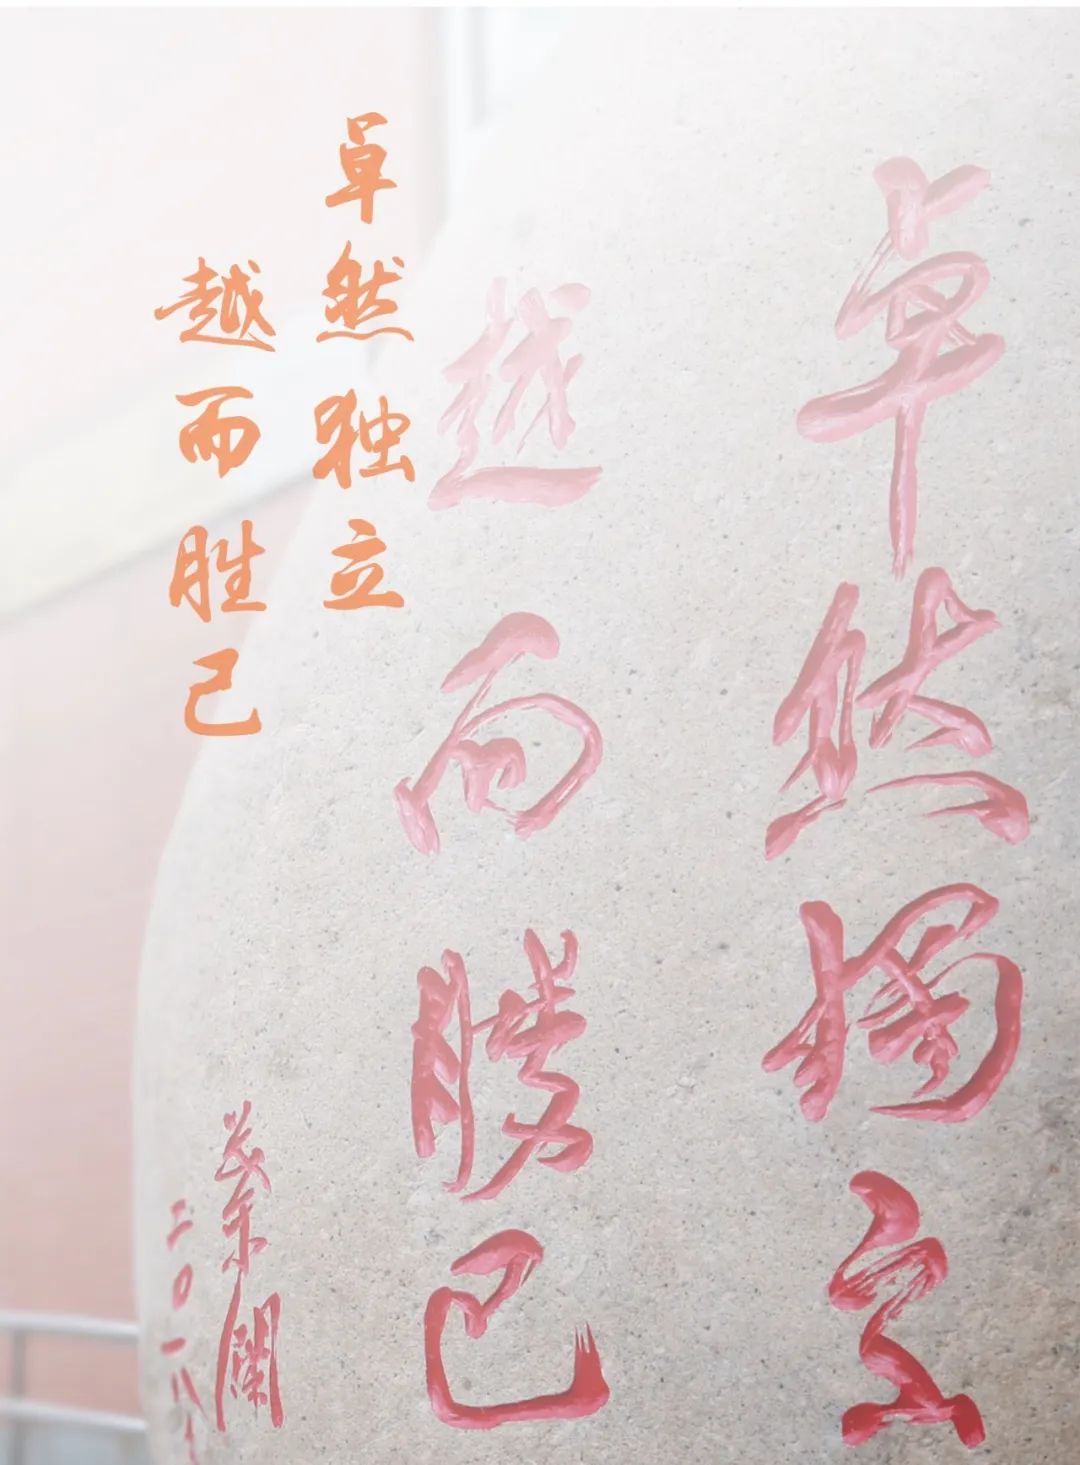 卓然独立
越而胜己
卓然獨立
越而勝己
蔡瀾
二〇一八